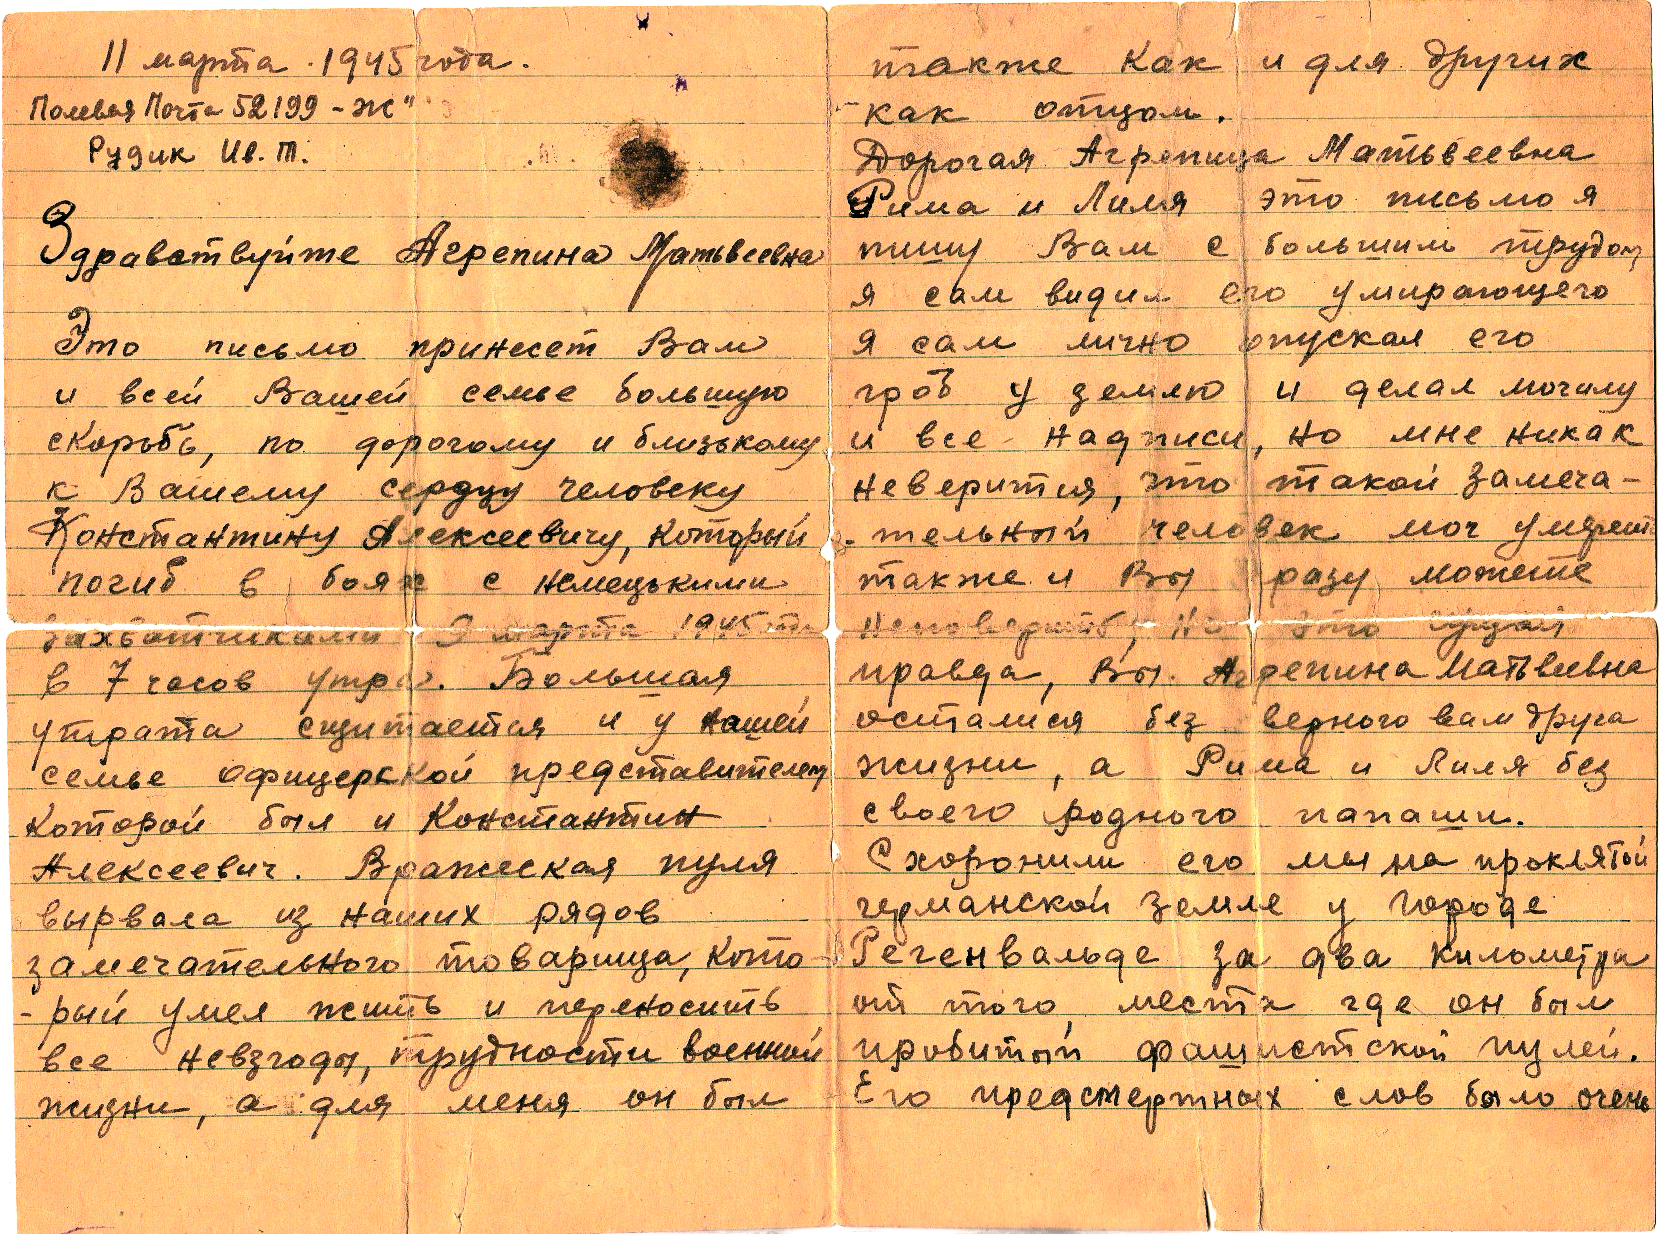 11 марта . 1945 года.
Полевая Почта 52199 - Ж"
Рудик Ив. Т.
Здравствуйте Агрепина Матьвеевна
Это письмо принесет Вам
и всей Вашей семье большую
скорьбь, по дорогому и близькому
к Вашему сердцу человеку
Константину Алексеевичу, который
погиб в боях с немецькими
захватчиками 9 марта 1945
в 7 часов утра. Большая
утрата сщитается и у нашей
семье офицерской представителем
которой был и Константин
Алексеевич. Вражеская пуля
вырвала из наших рядов
замечательного товарища, кото-
-рый умел жить и переносить
все невзгоды, трудности военной
жизни, а для меня он был
также как и для других
как отцом.
Дорогая Агрепина Матьвеевна
Рима и Лиля это письмо я
пишу Вам с большим трудом,
я сам видил его умирающего
я сам лично опускал его
гроб у землю и делал могилу
и все надписи, но мне никак
неверится, что такой замеча-
-тельный человек мог умереть
также и Вы сразу можете
неповерить, но это
правда, Вы. Агрепина Матьвеевна
осталися без верного вам друга
жизни, а Рима и Лиля без
своего родного папаши.
Схоронили его мы на проклятой
германской земле у городе
Регенвальде за два километра
от того места где он был
пробитый фашистской пулей.
Его предсмертных слов было очень